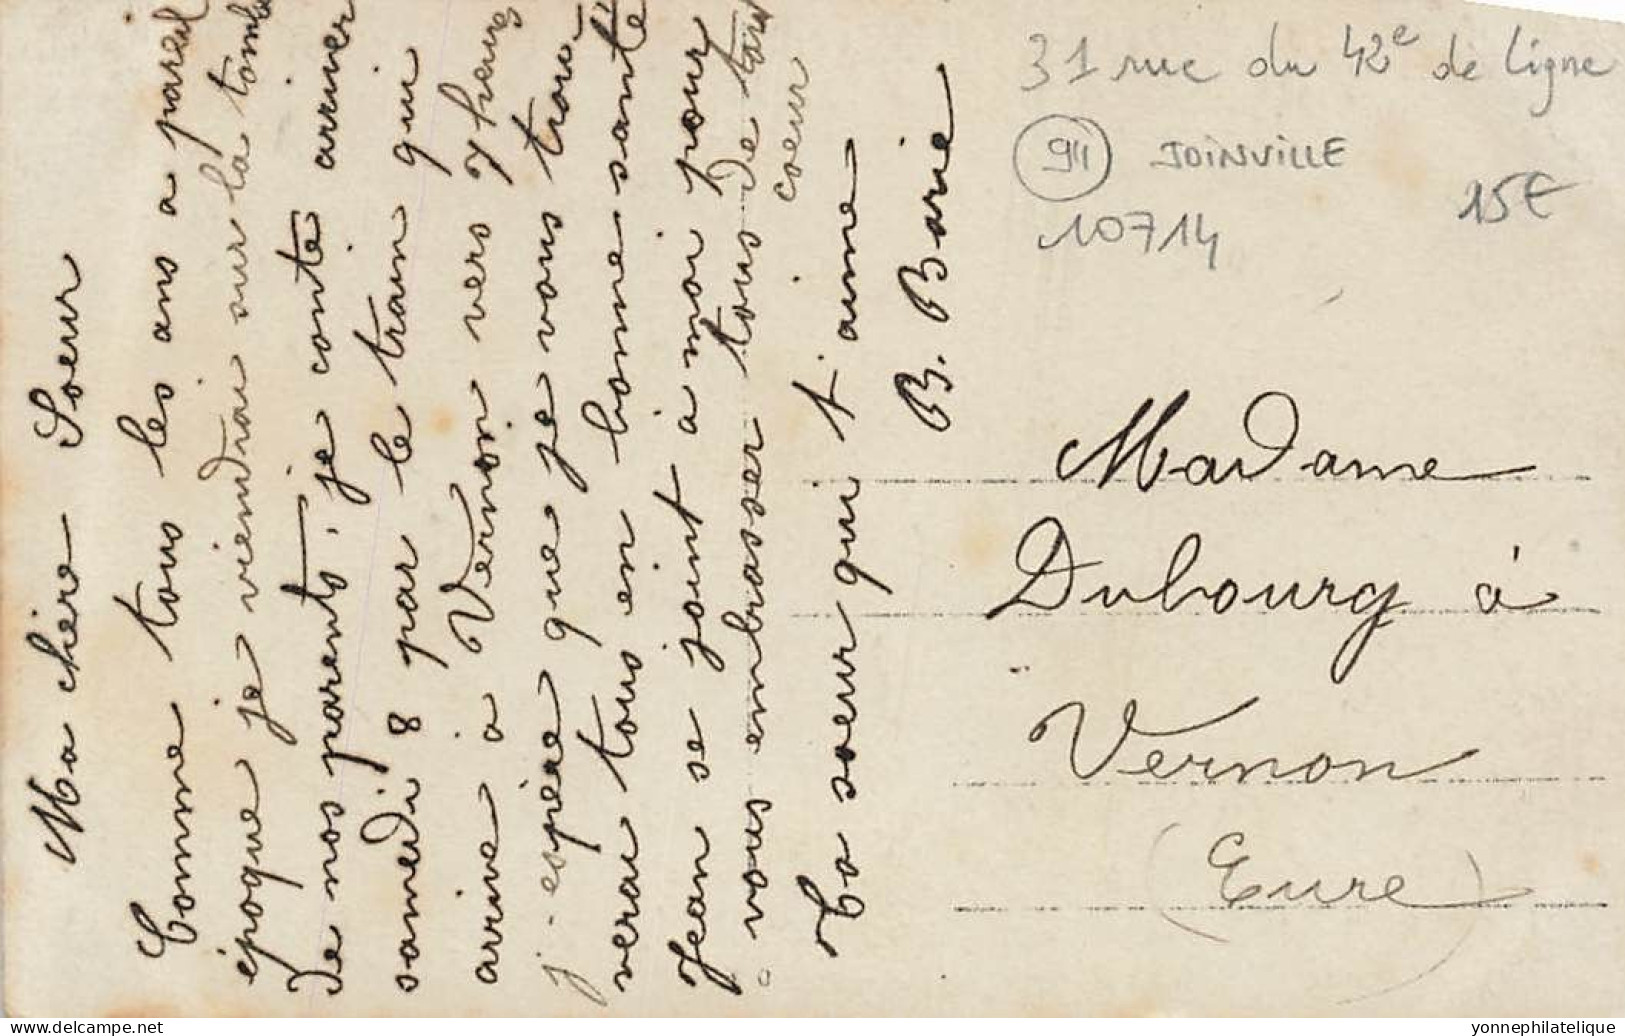 Ma chère Soeur
Comme tous les ans a pareil
époque je viendrai sur la tombe
de nos parents, je conte arriver
samedi 8 par le train qui
arrive à Vernon vers 7 heures
j-espère que je vous trou-
verai tous en bonne santé
Jean se joint à moi pour
vous embrasser tous de tout
coeur
Ta soeur qui t aime
B. Barie
31 rue du 42e de Ligne
94 JOINVILLE
15€
10714
Madame
Dubourg à
Vernon
(Eure)
yonnephilatelique